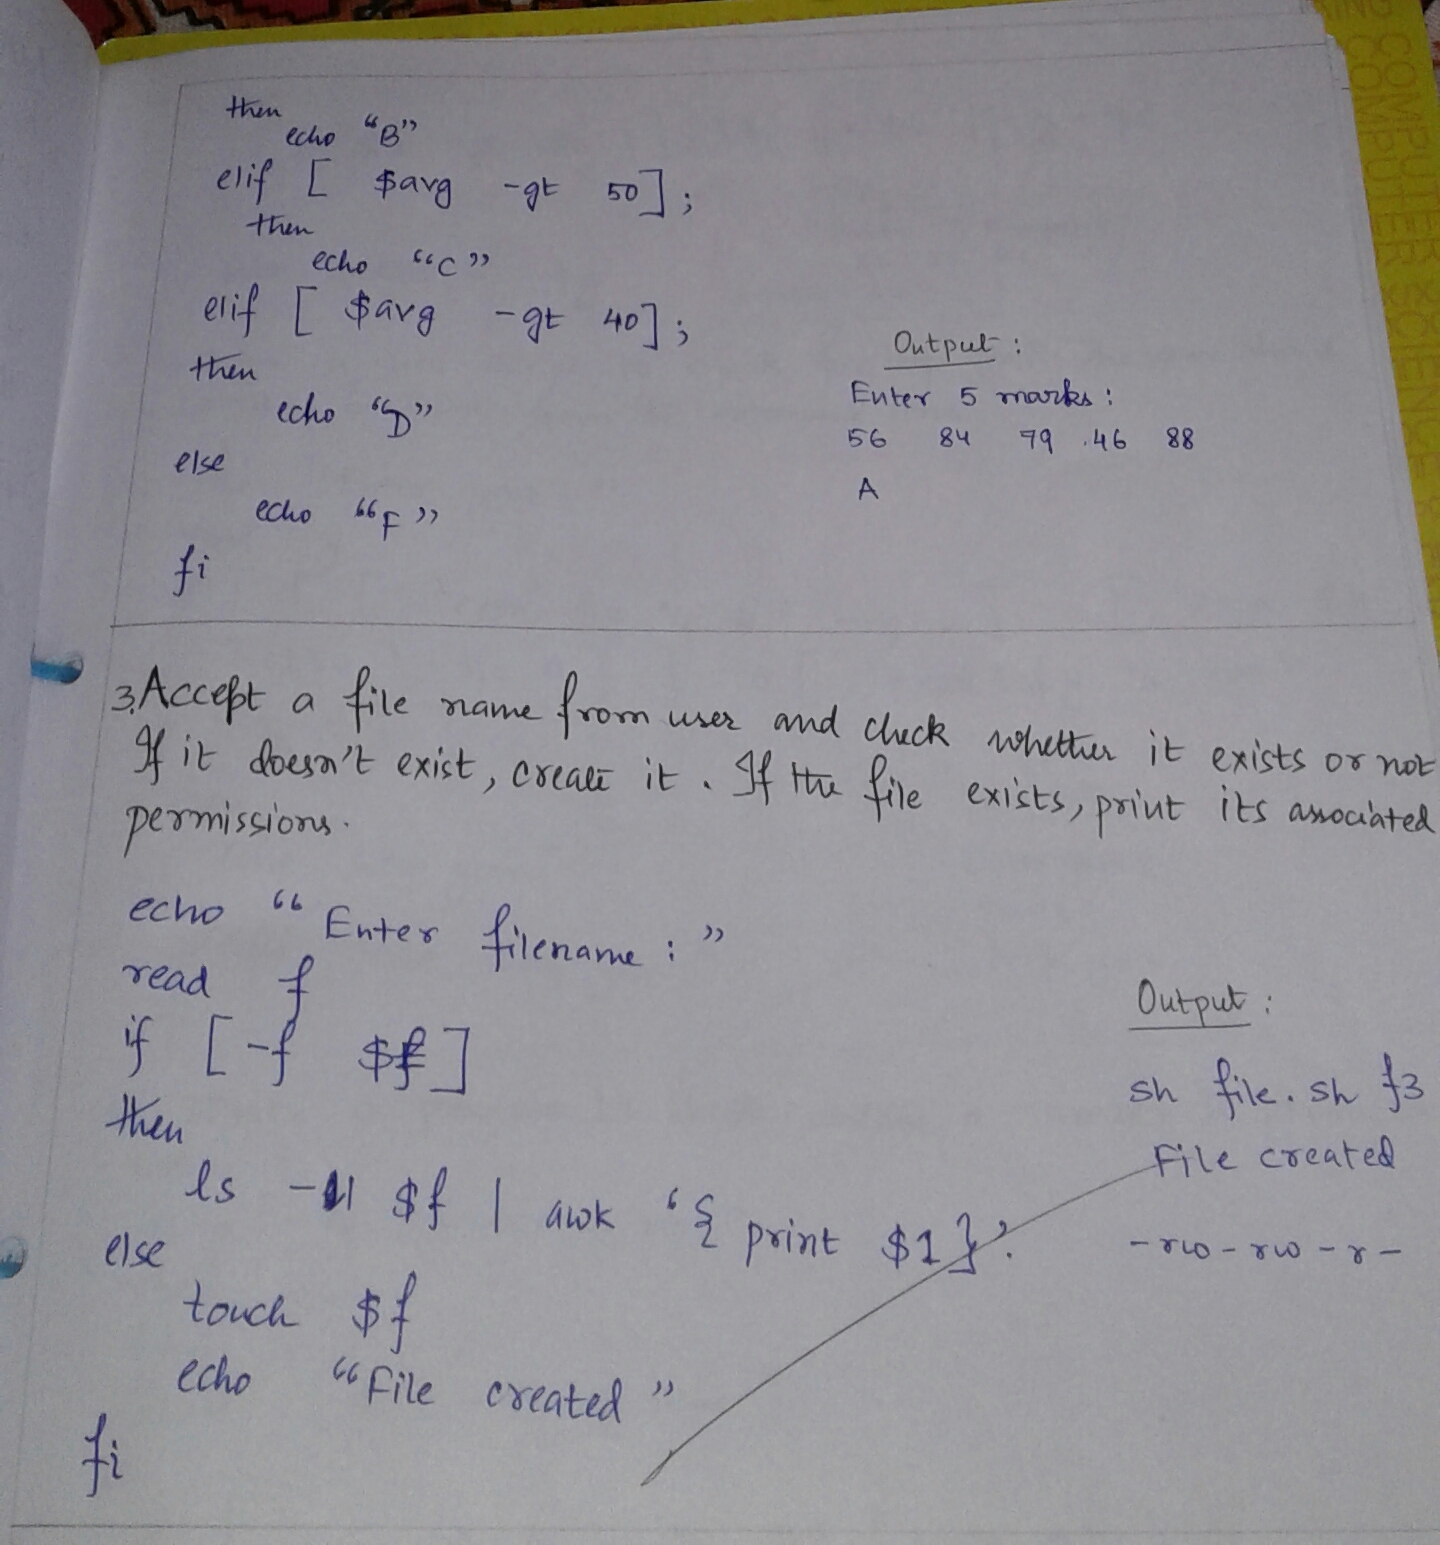 then
echo “B”
elif [ $avg -gt 50];
then
echo “C”
elif [ $avg -gt 40];
then
echo “D”
else
echo “F”
fi
Output :
Enter 5 marks :
56 84 79 46 88
A
3. Accept a file name from user and check whether it exists or not
If it doesn't exist, create it. If the file exists, print its associated
permissions.
echo “Enter filename : ”
read f
if [-f $f]
then
ls -l $f | awk ‘{ print $1}’.
else
touch $f
echo “File created”
fi
Output :
sh file.sh f3
File created
-rw-rw-r-
COMPUTER SCIENCE